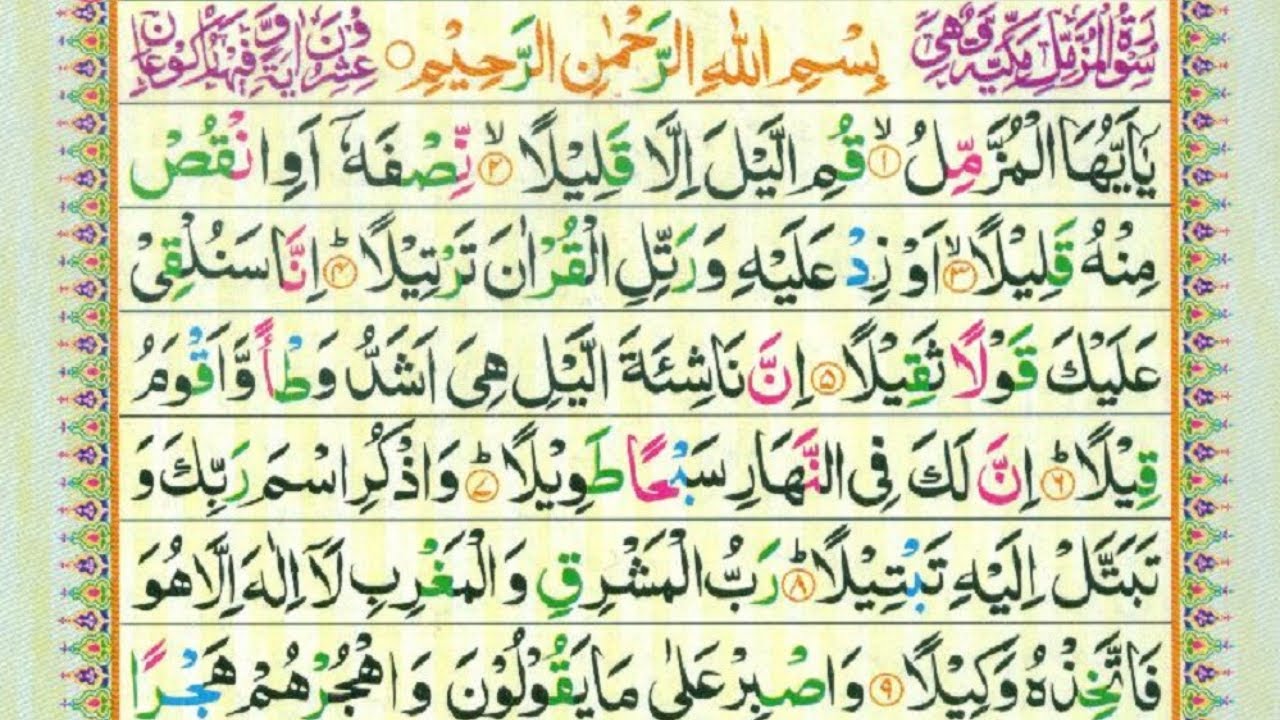 سورة المزمل مكية وهي بِسْمِ اللهِ الرَّحْمٰنِ الرَّحِيْمِ ○ عشرون اية وفيها ركوعان
يٰۤاَيُّهَا الْمُزَّمِّلُ ۙ﴿۱﴾ قُمِ الَّيْلَ اِلَّا قَلِيْلًا ۙ﴿۲﴾ نِّصْفَهٗۤ اَوِ انْقُصْ
مِنْهُ قَلِيْلًا ۙ﴿۳﴾ اَوْ زِدْ عَلَيْهِ وَ رَتِّلِ الْقُرْاٰنَ تَرْتِيْلًا ؕ﴿۴﴾ اِنَّا سَنُلْقِيْ
عَلَيْكَ قَوْلًا ثَقِيْلًا ﴿۵﴾ اِنَّ نَاشِئَةَ الَّيْلِ هِيَ اَشَدُّ وَطْاً وَّ اَقْوَمُ
قِيْلًا ؕ﴿۶﴾ اِنَّ لَكَ فِي النَّهَارِ سَبْحًا طَوِيْلًا ؕ﴿۷﴾ وَ اذْكُرِ اسْمَ رَبِّكَ وَ
تَبَتَّلْ اِلَيْهِ تَبْتِيْلًا ؕ﴿۸﴾ رَبُّ الْمَشْرِقِ وَ الْمَغْرِبِ لَاۤ اِلٰهَ اِلَّا هُوَ
فَاتَّخِذْهُ وَكِيْلًا ﴿۹﴾ وَ اصْبِرْ عَلٰى مَا يَقُوْلُوْنَ وَ اهْجُرْهُمْ هَجْرًا